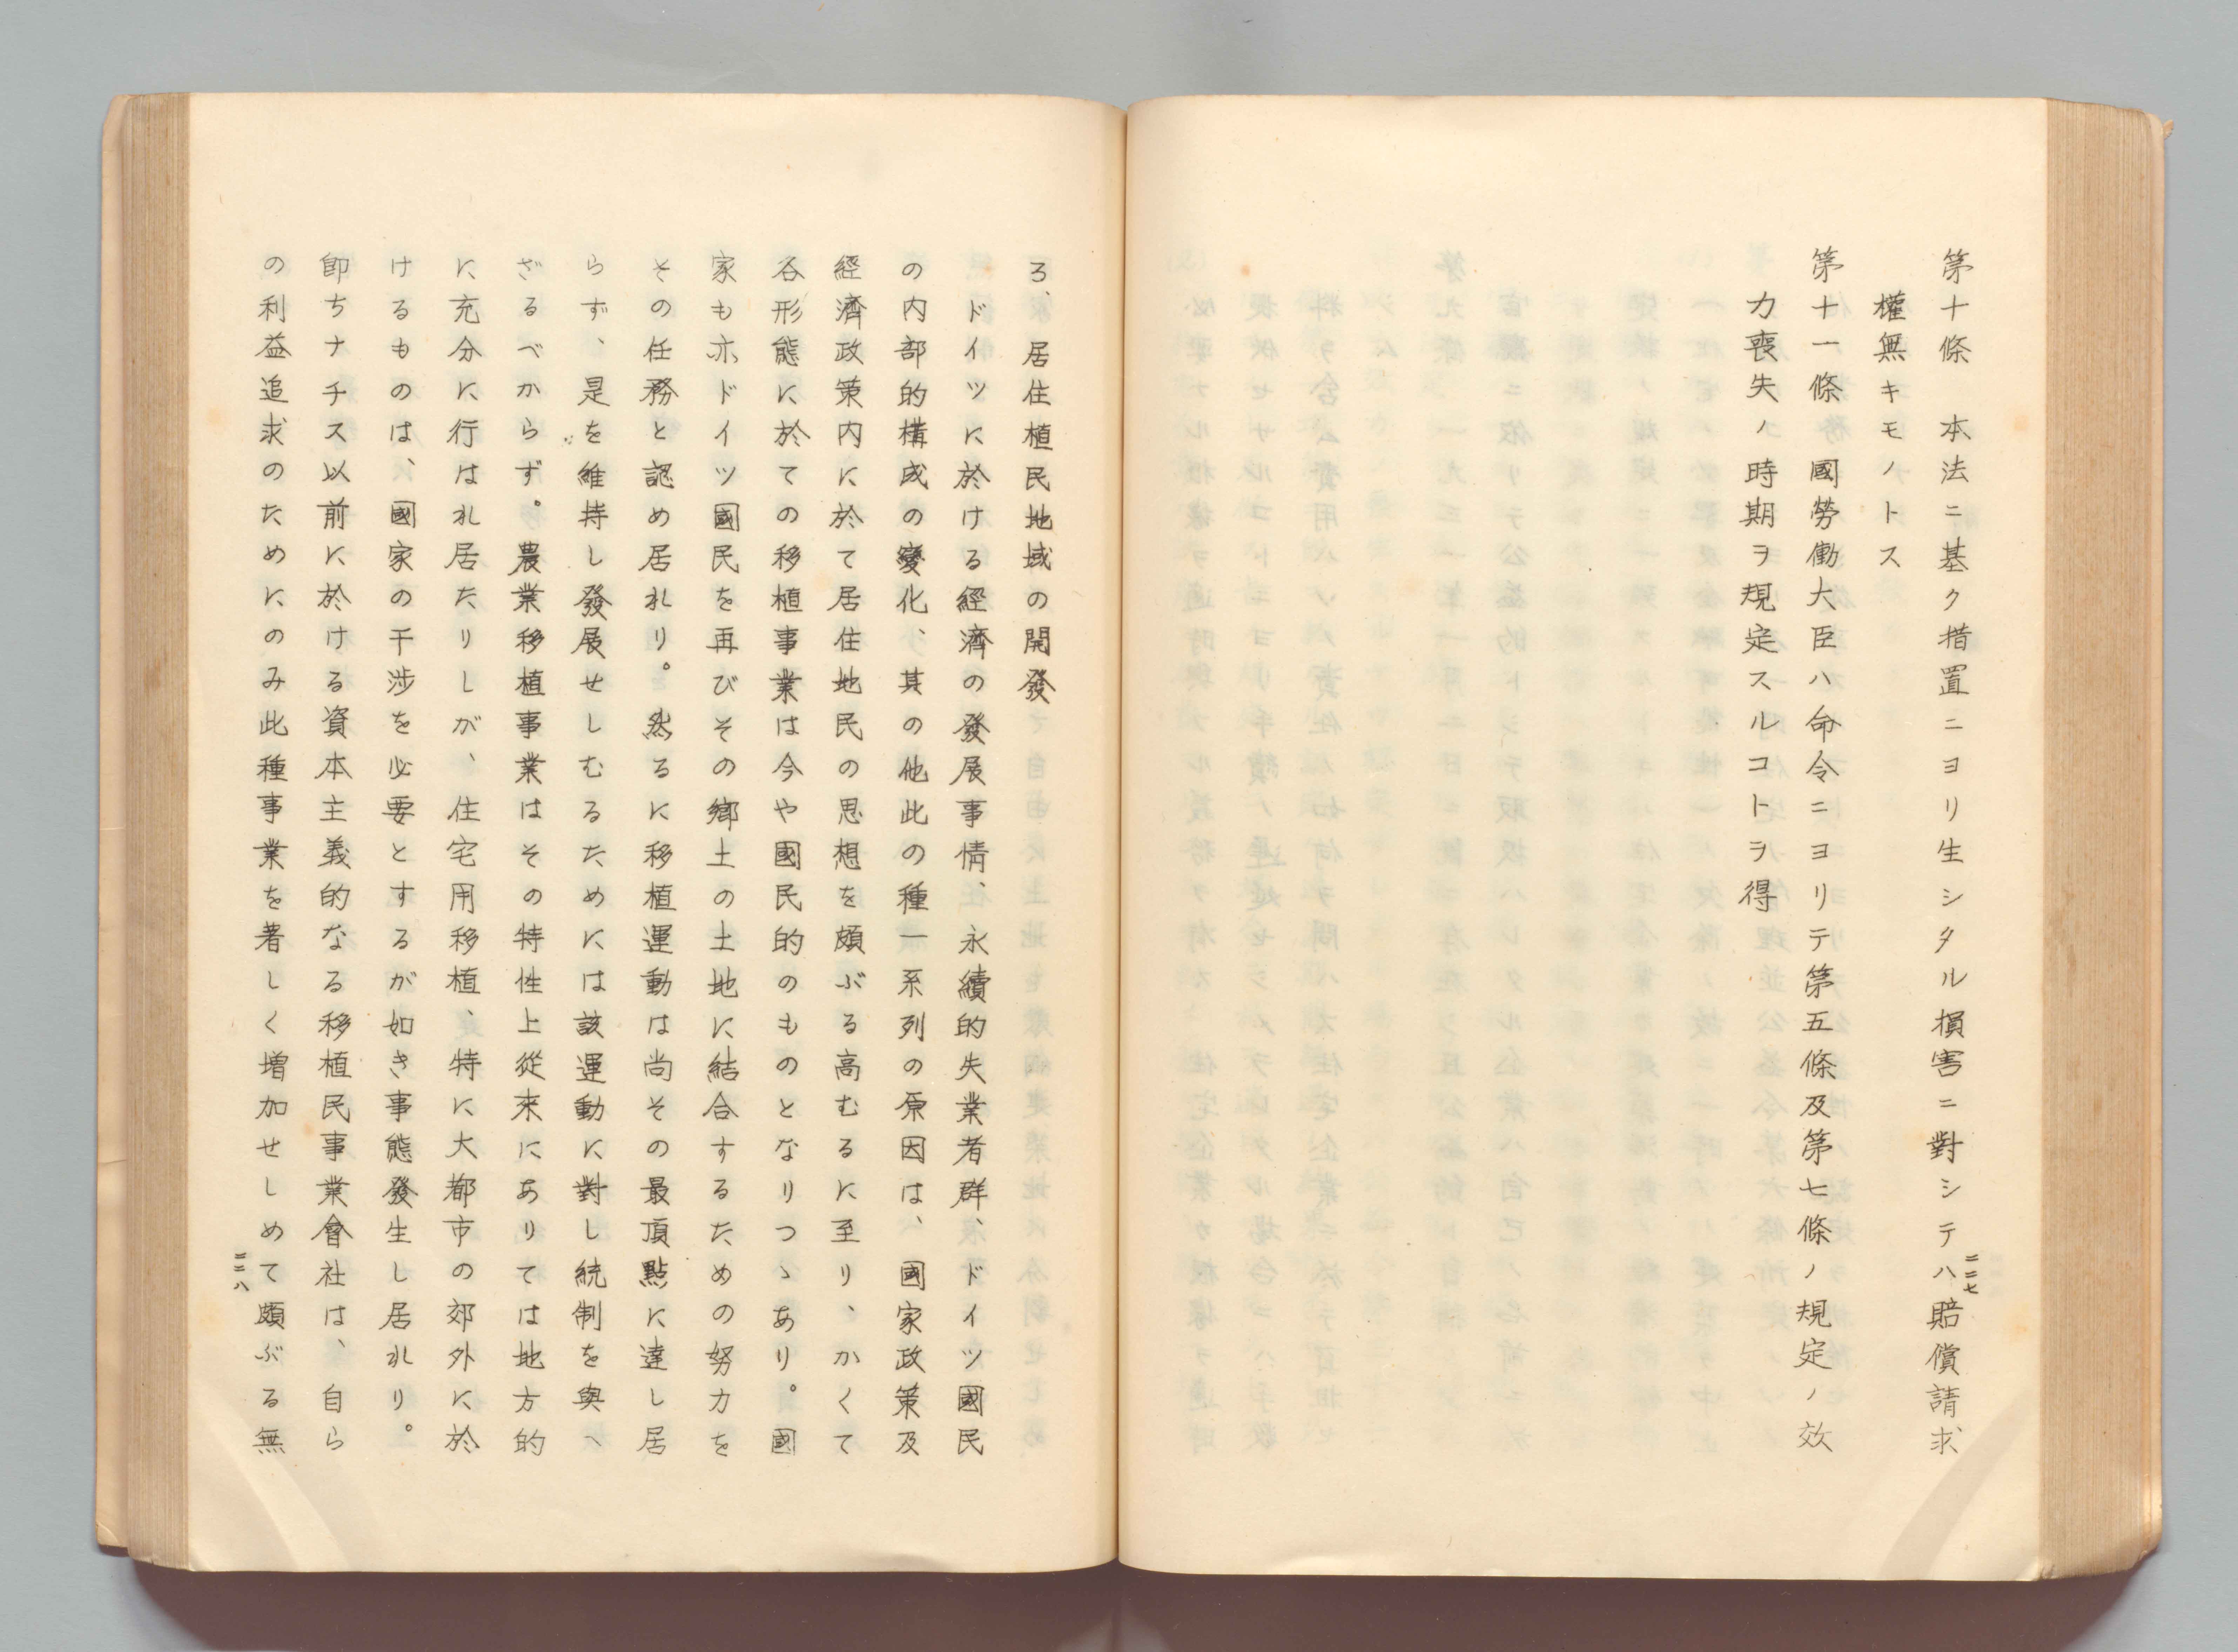 第十條　本法ニ基ク措置ニヨリ生シタル損害ニ對シテハ賠償請求
權無キモノトス
第十一條　國勞働大臣ハ命令ニヨリテ第五條及第七條ノ規定ノ效
力喪失ノ時期ヲ規定スルコトヲ得
二二七
ろ、居住植民地域の開發
ドイツに於ける經濟の發展事情、永續的失業者群、ドイツ國民
の内部的構成の變化、其の他此の種一系列の原因は、國家政策及
經濟政策内に於て居住地民の思想を頗ぶる高むるに至り、かくて
各形態に於ての移植事業は今や國民的のものとなりつゝあり。國
家も亦ドイツ國民を再びその郷土の土地に結合するための努力を
その任務と認め居れり。然るに移植運動は尚その最頂點に達し居
らず、是を維持し發展せしむるためには該運動に對し統制を與へ
ざるべからず。農業移植事業はその特性上從來にありては地方的
に充分に行はれ居たりしが、住宅用移植、特に大都市の郊外に於
けるものは、國家の干渉を必要とするが如き事態發生し居れり。
卽ちナチス以前に於ける資本主義的なる移植民事業會社は、自ら
の利益追求のためにのみ此種事業を著しく増加せしめて頗ぶる無
二二八